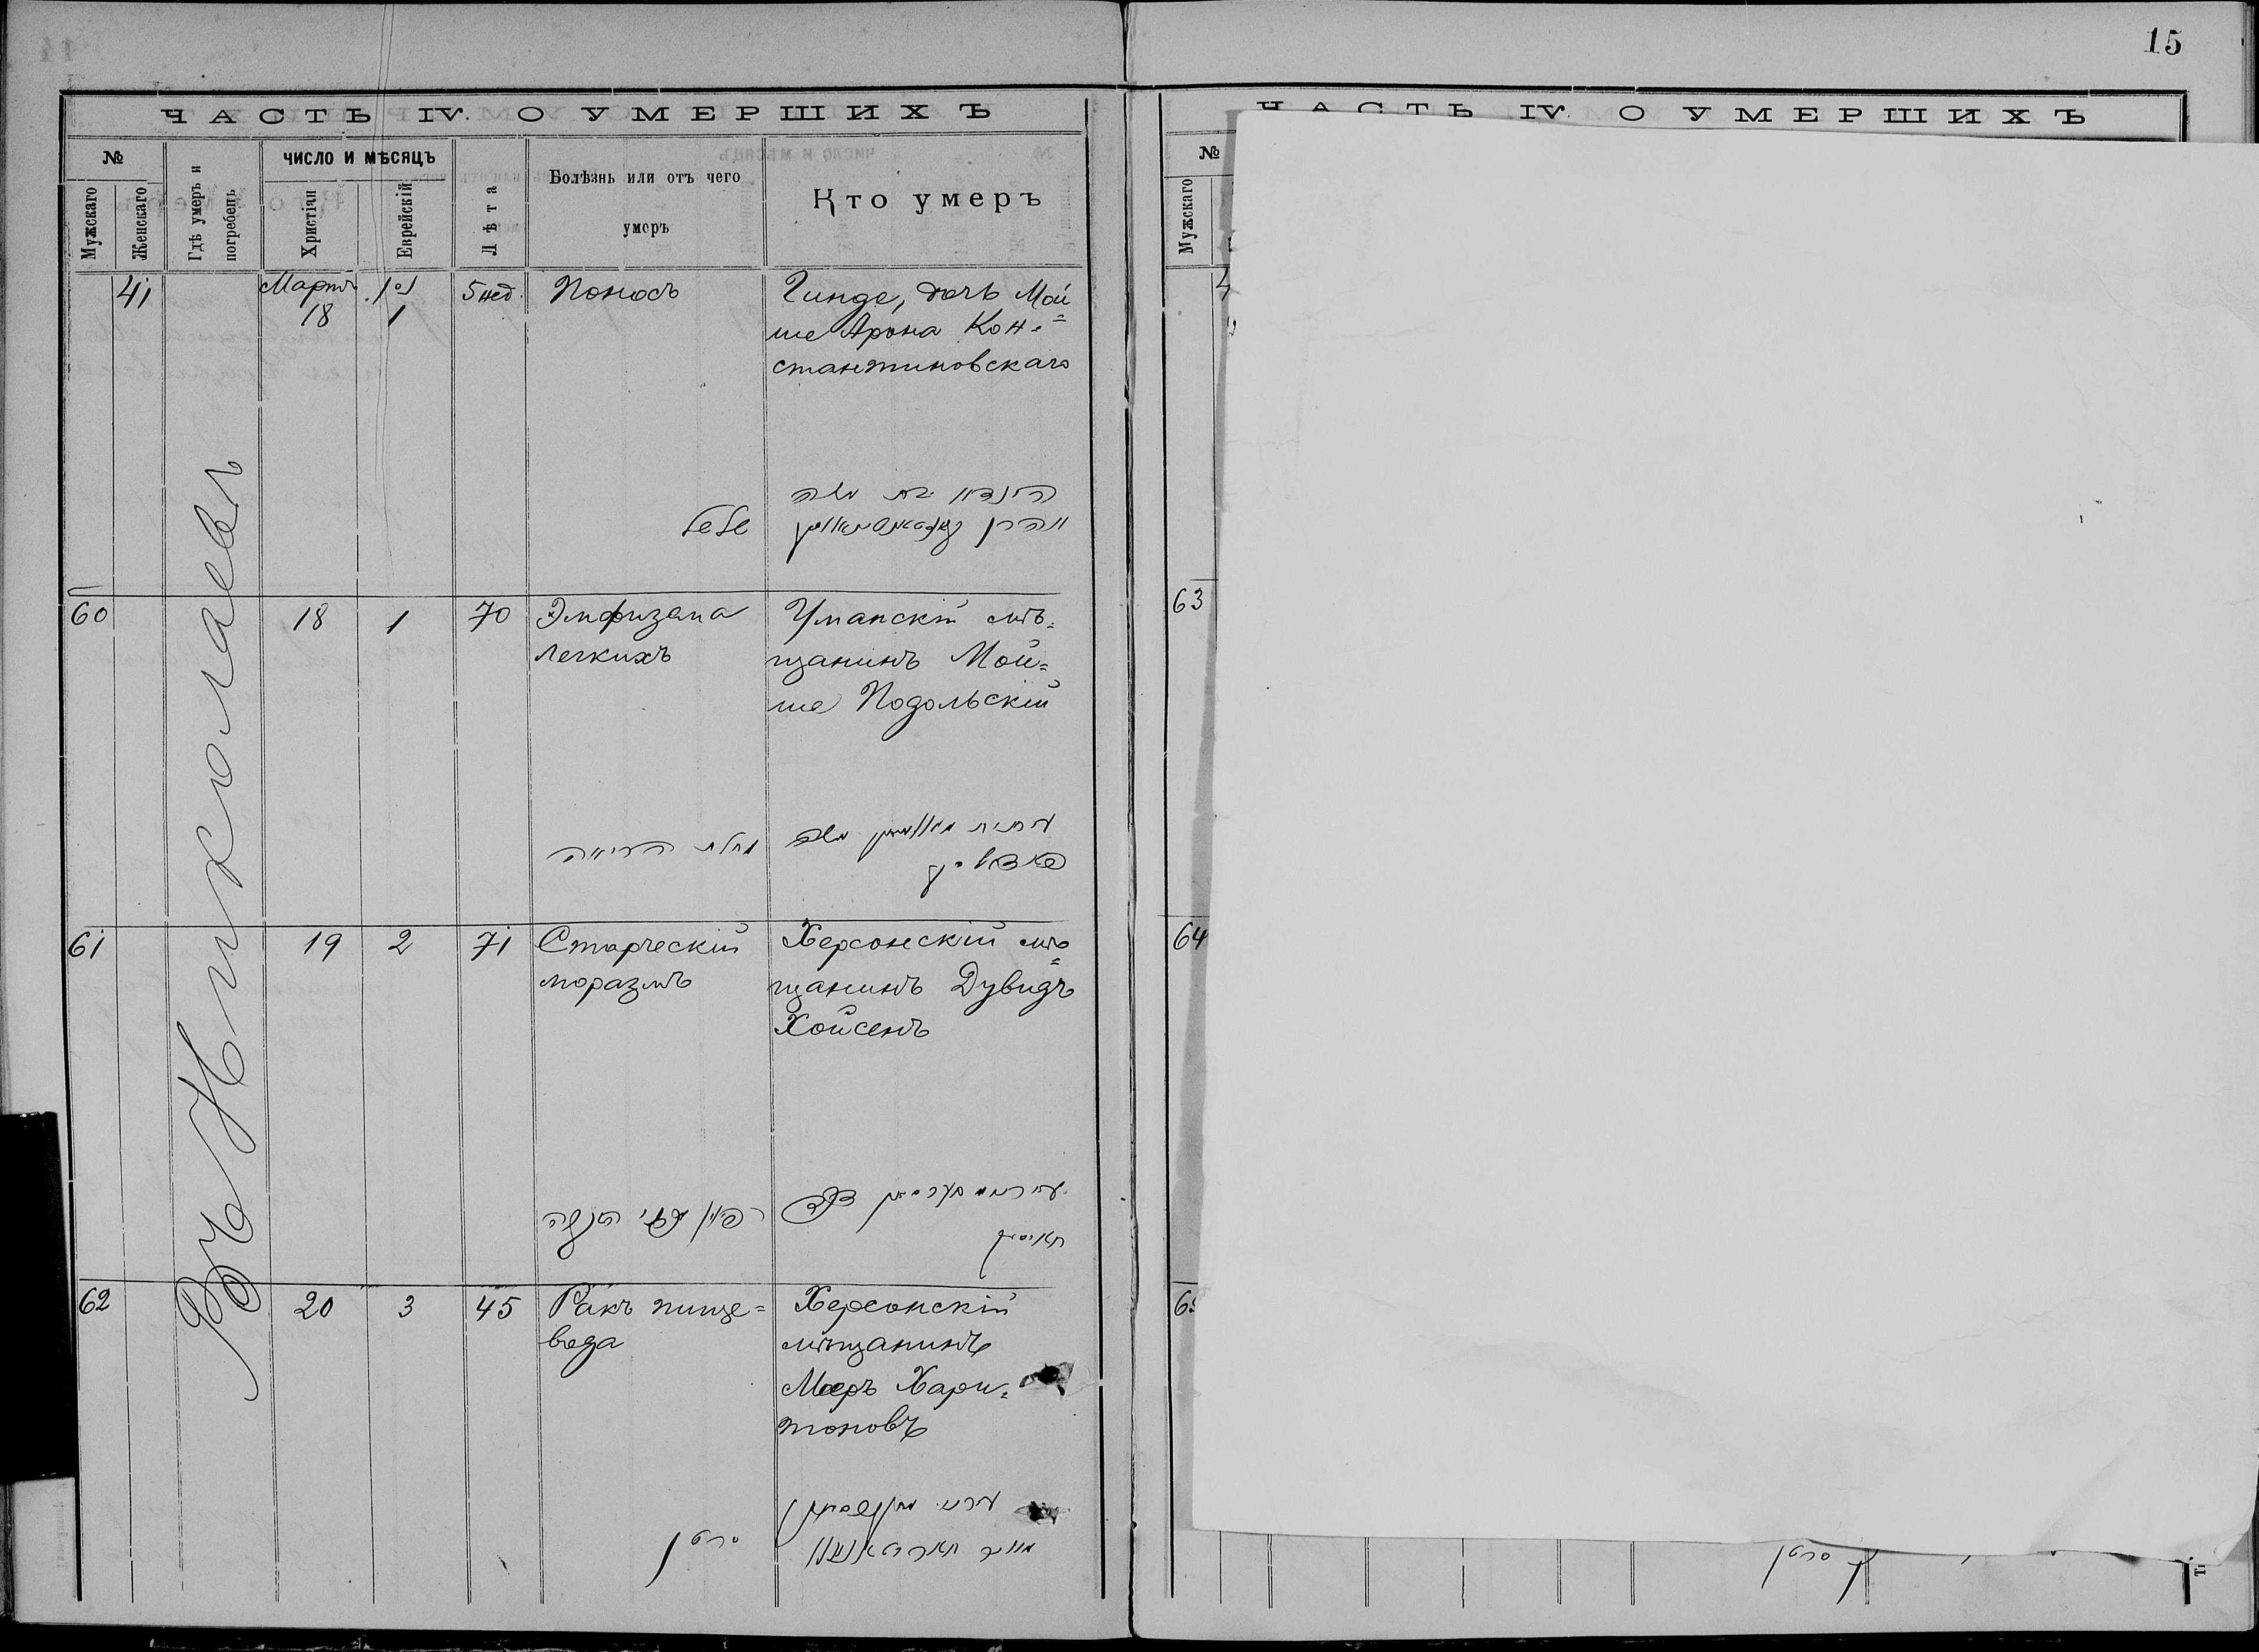 15
ЧАСТЬ IV. О УМЕРШИХЪ
№
Мужскаго
Женскаго
Гдѣ умеръ и погребенъ
ЧИСЛО И МѢСЯЦЪ
Христіан
Еврейскій
Лѣта
Болѣзнь или отъ чего
умеръ
Кто умеръ
Въ Николаевѣ
41
Мартъ
18
1
5 нед.
Поносъ
Гинде, дочь Мой=
ше Арона Кон=
стантиновскаго
שלשל
הינדא בת משה
אהרן
60
18
1
70
Эмфизема
легкихъ
Уманскій мѣ=
щанинъ Мой=
ше Подольскій
מחלת הריאה
משה
61
19
2
71
Старческій
моразмъ
Херсонскій мѣ=
щанинъ Дувидъ
Хойсенъ
62
20
3
45
Ракъ пище=
вода
Херсонскій
мѣщанинъ
Мееръ Хари=
тоновъ
סרטן
מאיר
ЧАСТЬ IV. О УМЕРШИХЪ
№
Мужскаго
63
64
סרטן